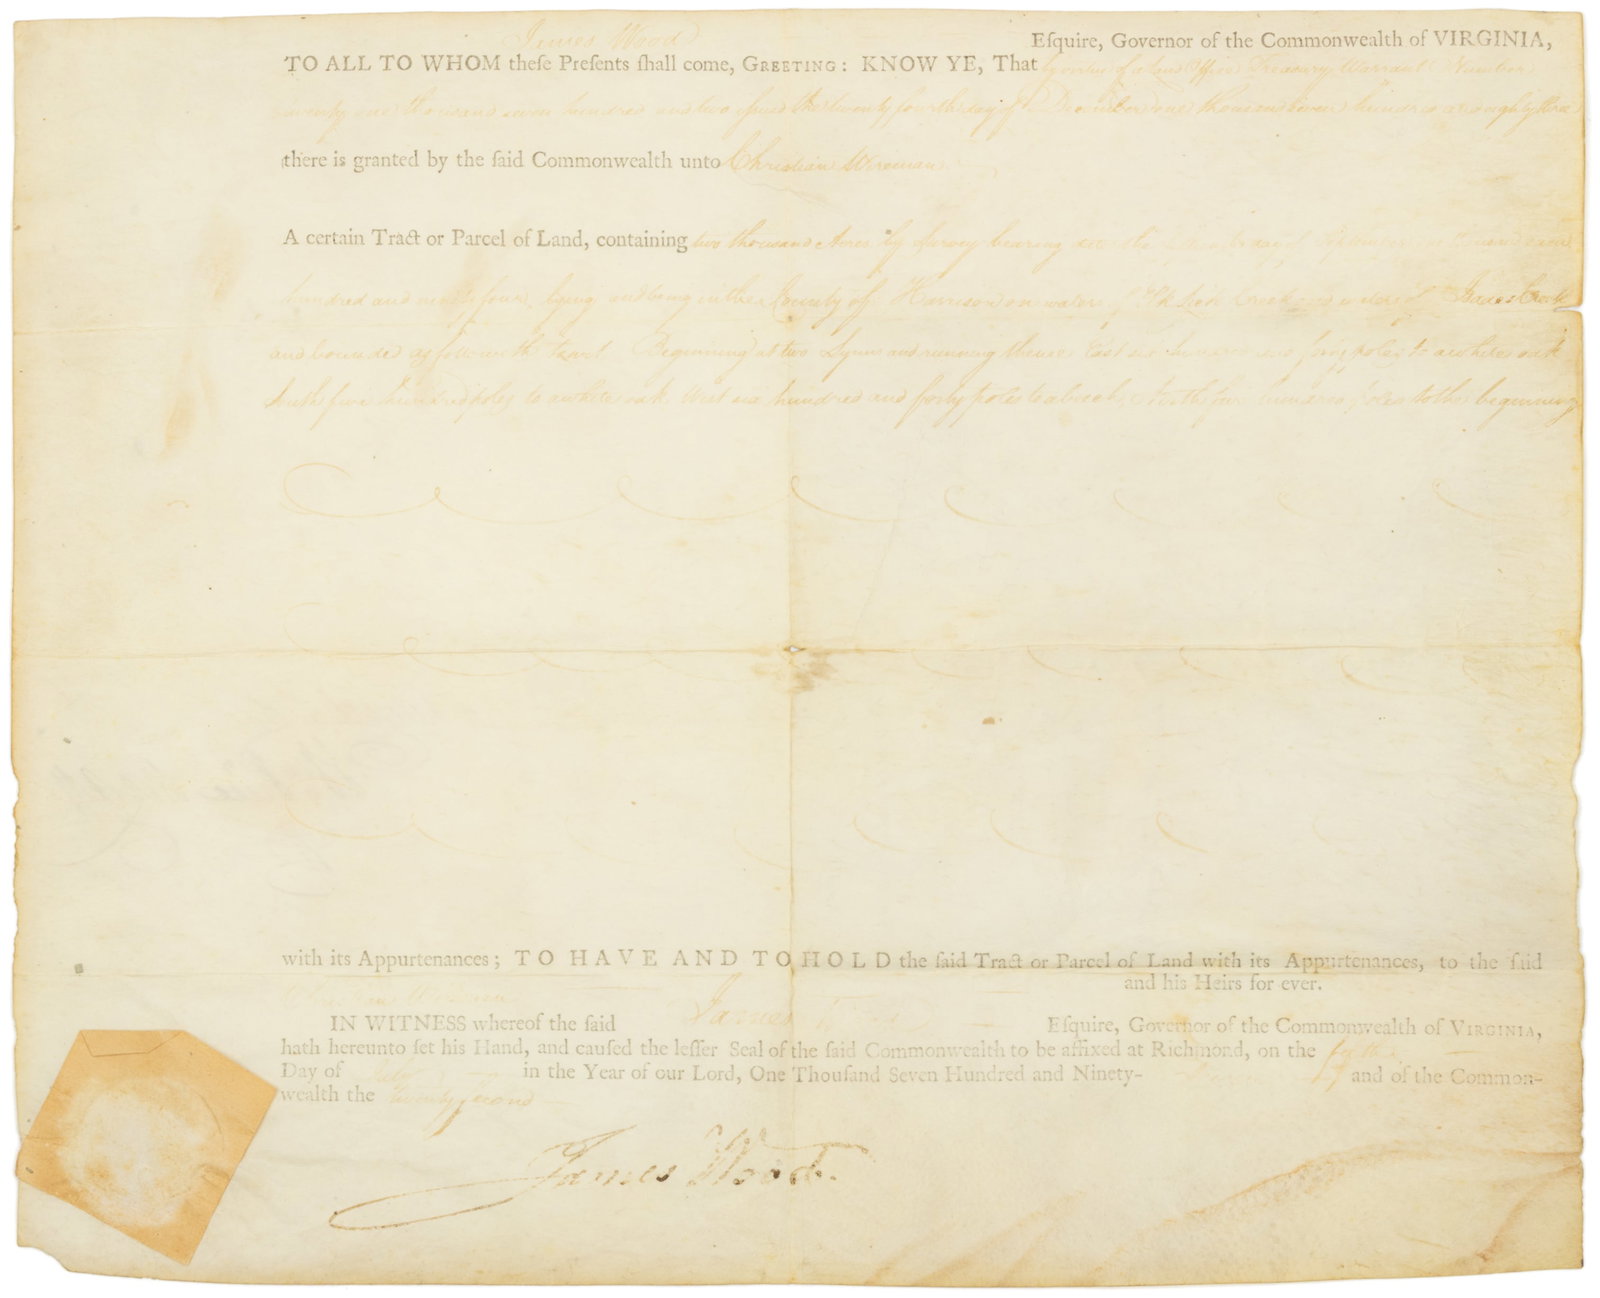 James Wood Esquire, Governor of the Commonwealth of VIRGINIA,
TO ALL TO WHOM theſe Preſents ſhall come, GREETING: KNOW YE, That by virtue of a Land Office Treasury Warrant Number
twenty one thousand seven hundred and two issued the twenty fourth day of December one thousand seven hundred and eighty three
there is granted by the ſaid Commonwealth unto Christian Wireman
A certain Tract or Parcel of Land, containing two thousand Acres by Survey bearing date the day of
hundred and ninety four lying and being in the County of Harrison on waters of Elk Creek and waters of Isaacs Creek
and bounded as followeth to wit Beginning at two Lynns and running thence East six hundred and forty poles to a white oak
South five hundred poles to a white oak West six hundred and forty poles to a beech, North five hundred poles to the beginning
with its Appurtenances; TO HAVE AND TO HOLD the ſaid Tract or Parcel of Land with its Appurtenances, to the ſaid
Christian Wireman and his Heirs for ever.
IN WITNESS whereof the ſaid James Wood Eſquire, Governor of the Commonwealth of VIRGINIA,
hath hereunto ſet his Hand, and cauſed the leſſer Seal of the ſaid Commonwealth to be affixed at Richmond, on the
Day of July in the Year of our Lord, One Thouſand Seven Hundred and Ninety- and of the Common-
wealth the twenty second
James Wood.